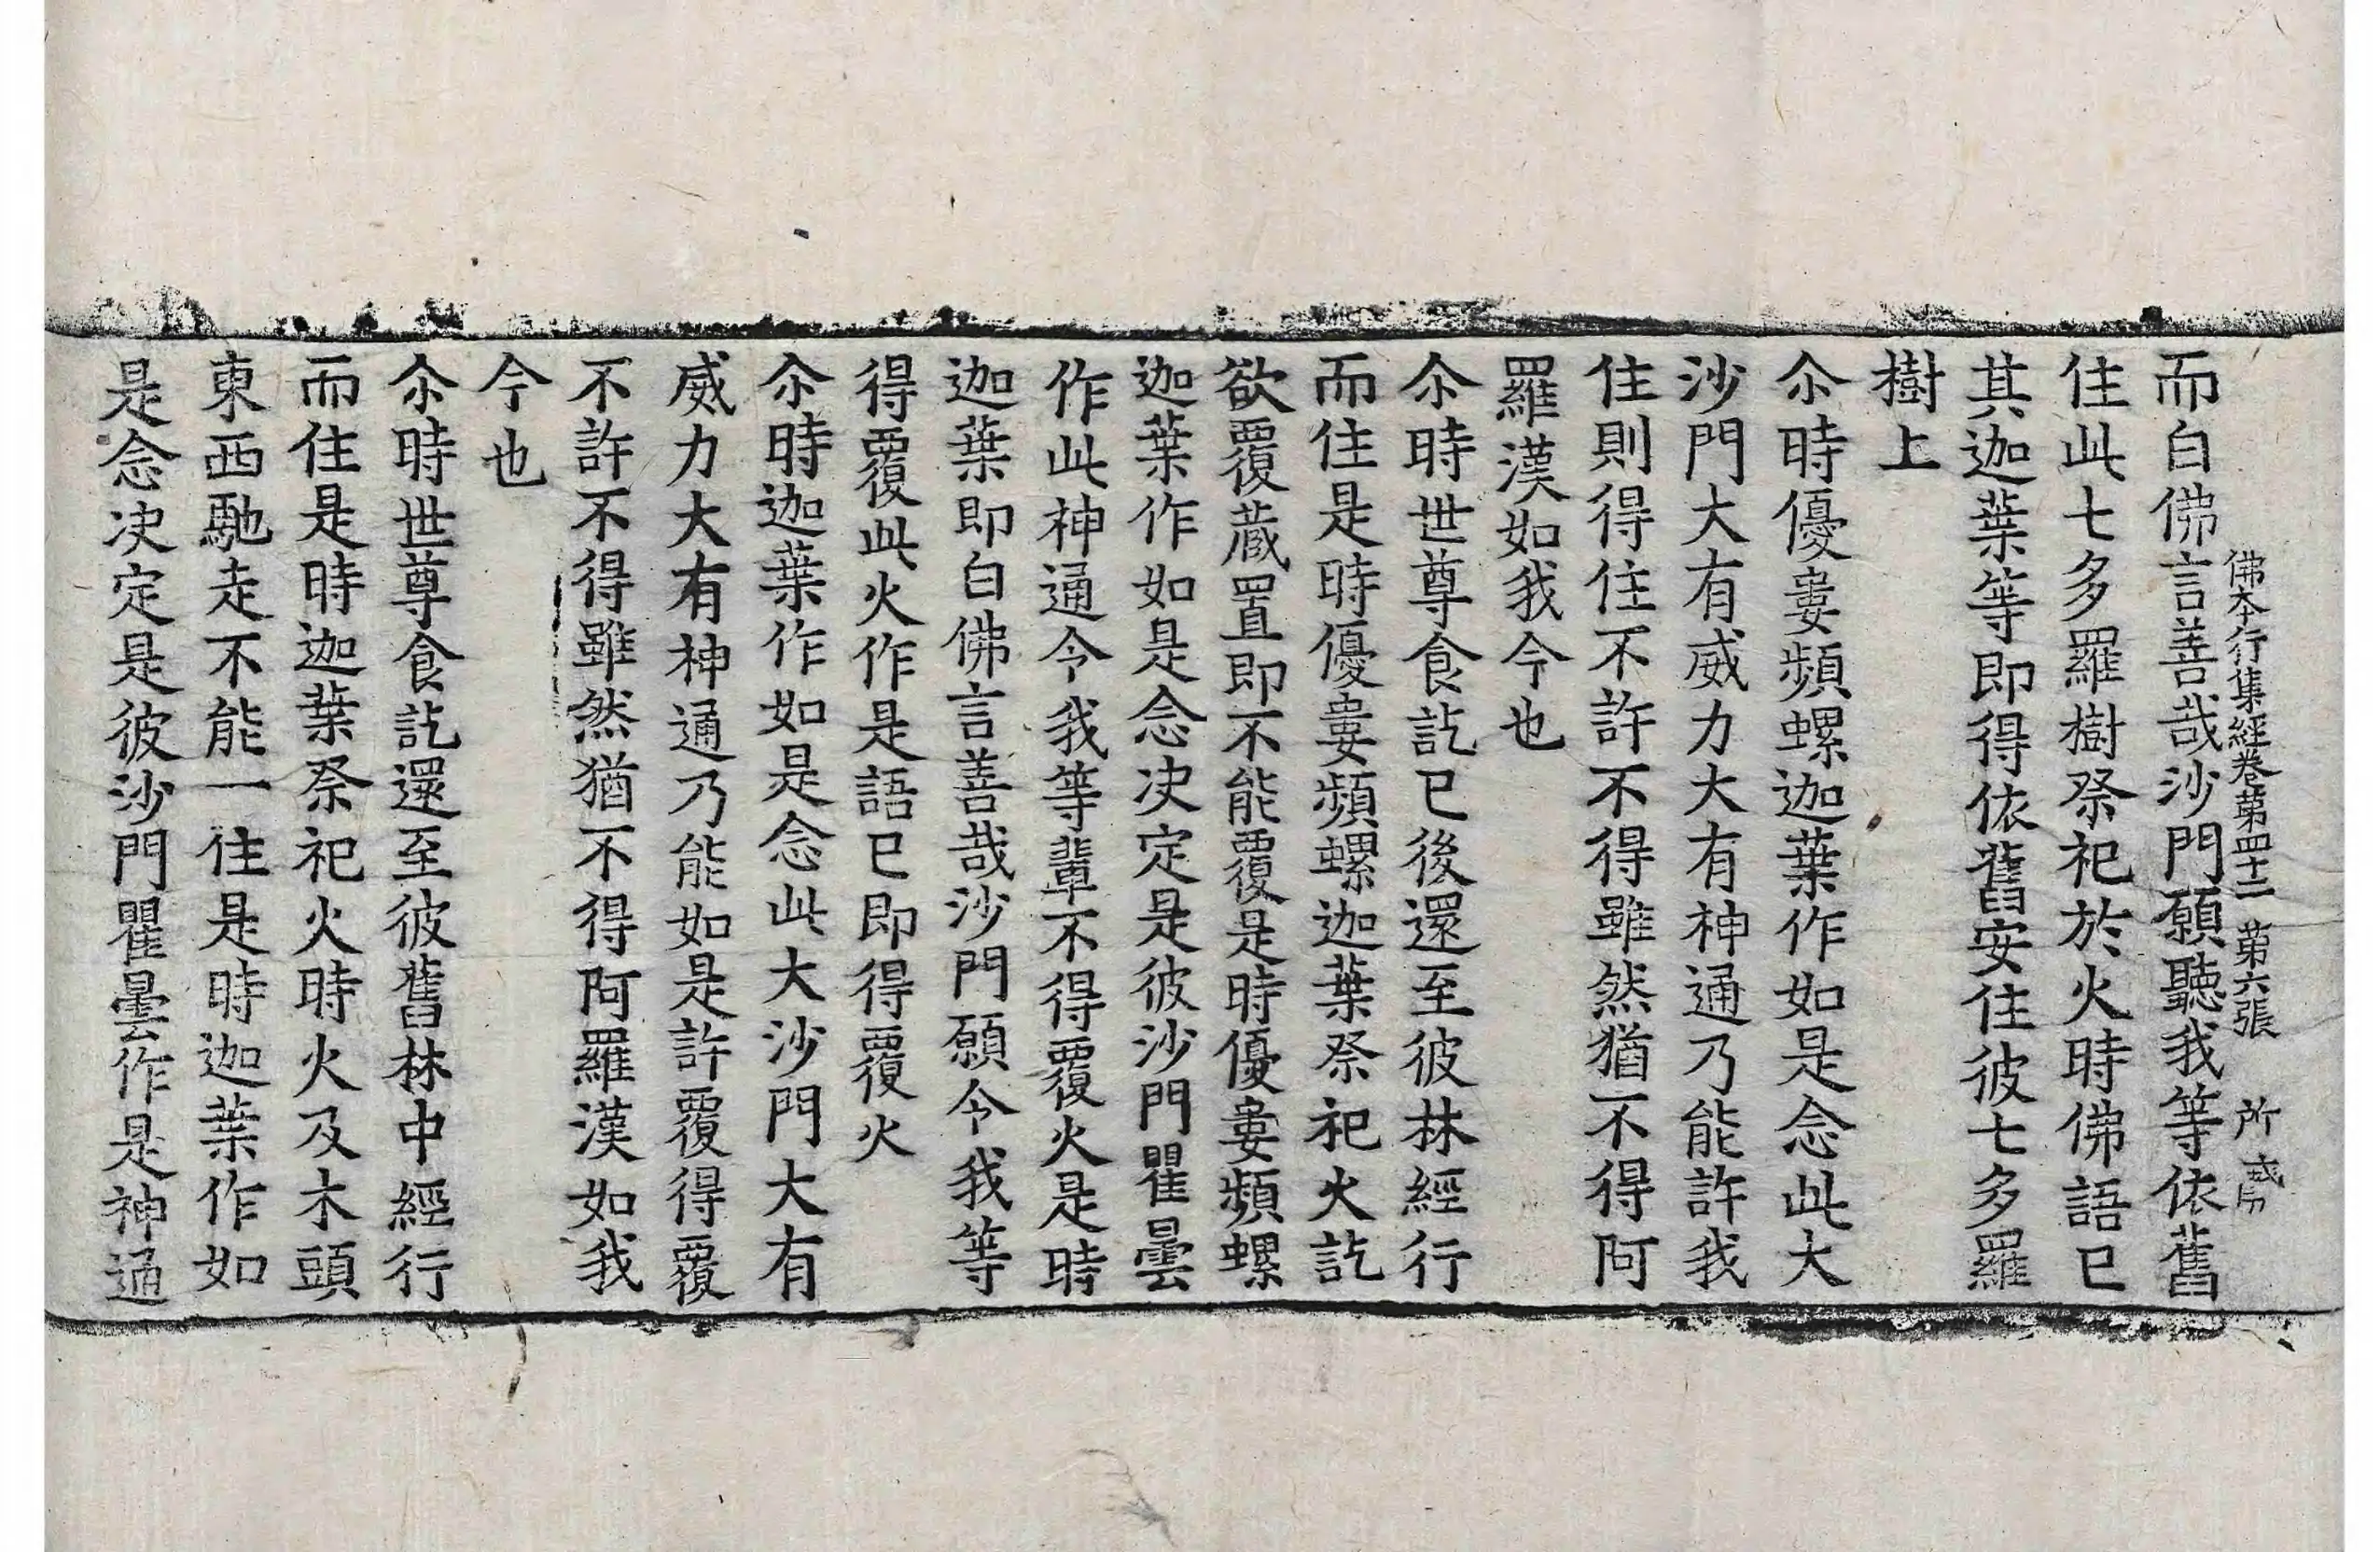 佛本行集經卷第四十二 第六張 所
而白佛言善哉沙門願聽我等依舊
住此七多羅樹祭祀於火時佛語已
其迦葉等即得依舊安住彼七多羅
樹上
尒時優婁頻螺迦葉作如是念此大
沙門大有威力大有神通乃能許我
住則得住不許不得雖然猶不得阿
羅漢如我今也
尒時世尊食訖已後還至彼林經行
而住是時優婁頻螺迦葉祭祀火訖
欲覆藏置即不能覆是時優婁頻螺
迦葉作如是念决定是彼沙門瞿曇
作此神通令我等輩不得覆火是時
迦葉即白佛言善哉沙門願令我等
得覆此火作是語已即得覆火
尒時迦葉作如是念此大沙門大有
威力大有神通乃能如是許覆得覆
不許不得雖然猶不得阿羅漢如我
今也
尒時世尊食訖還至彼舊林中經行
而住是時迦葉祭祀火時火及木頭
東西馳走不能一住是時迦葉作如
是念决定是彼沙門瞿曇作是神通